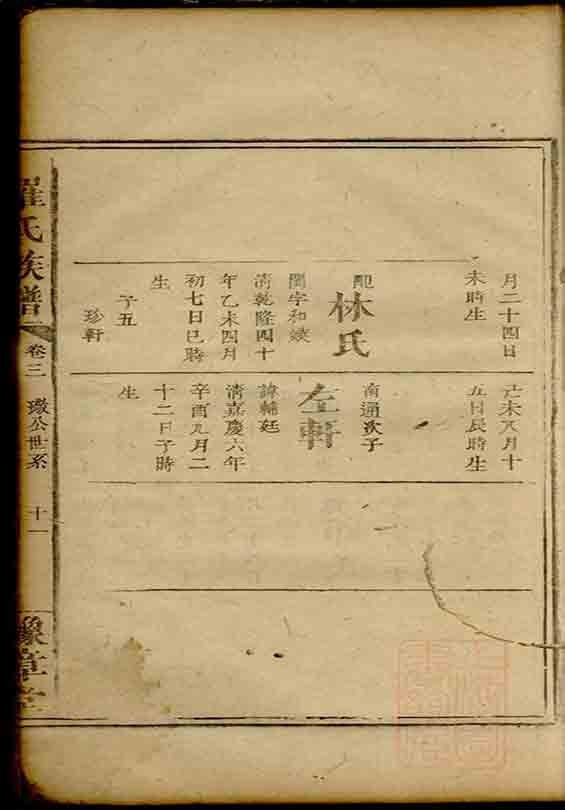 月二十四日
未時生
配
林氏
閨字和嫒
清乾隆四十
年乙未四月
初七日巳時
生
子五
珍軒
亡未八月十
五日辰時生
南通次子
左軒
諱輔廷
清嘉慶六年
辛酉九月二
十二日子時
生
羅氏族譜
卷三
璈公世系
十一
豫章堂